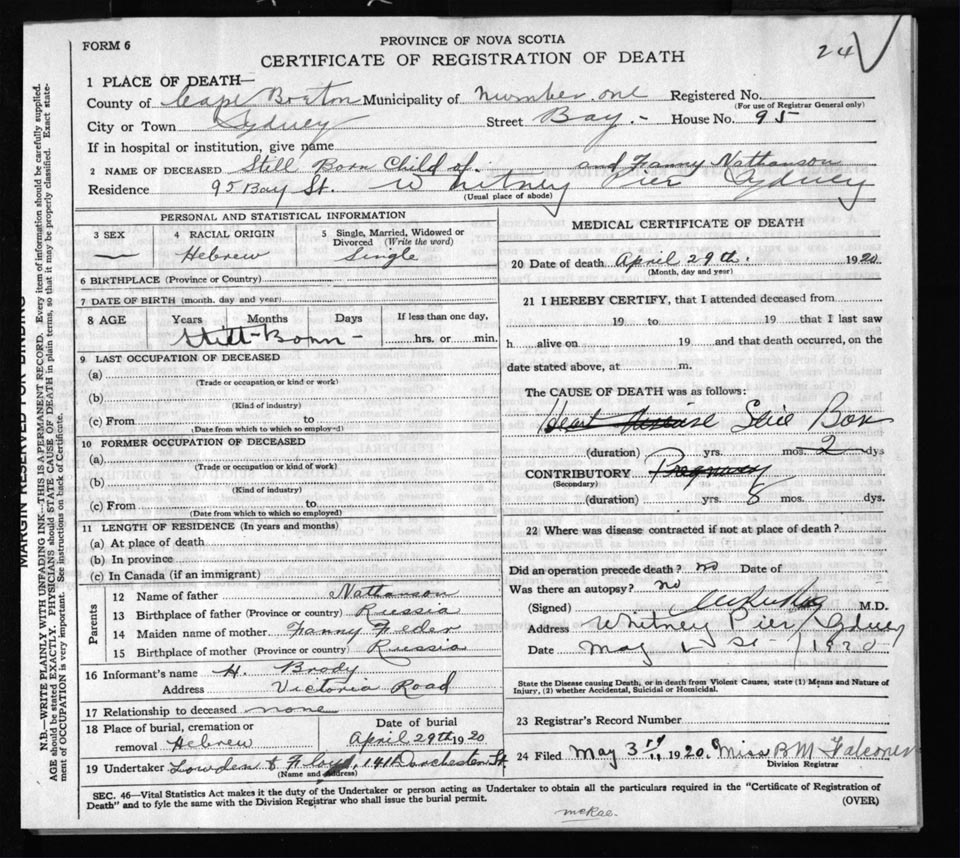 FORM 6
PROVINCE OF NOVA SCOTIA
24
CERTIFICATE OF REGISTRATION OF DEATH
1 PLACE OF DEATH—
County of Cape Breton Municipality of number one Registered No.
(For use of Registrar General only)
City or Town Sydney Street Bay.- House No. 95
If in hospital or institution, give name
2 NAME OF DECEASED Still Born Child of. and Fanny Nathanson
Residence 95 Bay St. Whitney Pier Sydney
(Usual place of abode)
PERSONAL AND STATISTICAL INFORMATION
3 SEX 4 RACIAL ORIGIN 5 Single, Married, Widowed or Divorced (Write the word)
— Hebrew Single
6 BIRTHPLACE (Province or Country)
7 DATE OF BIRTH (month, day and year)
8 AGE Years Months Days If less than one day,
Still-Born - hrs. or min.
9 LAST OCCUPATION OF DECEASED
(a)
(Trade or occupation or kind or work)
(b)
(Kind of industry)
(c) From to
(Date from which to which so employ-d)
10 FORMER OCCUPATION OF DECEASED
(a)
(Trade or occupation or kind of work)
(b)
(Kind of industry)
(c) From to
(Date from which to which so employed)
11 LENGTH OF RESIDENCE (In years and months)
(a) At place of death
(b) In province
(c) In Canada (if an immigrant)
Parents
12 Name of father Nathanson
13 Birthplace of father (Province or country) Russia
14 Maiden name of mother Fanny Feder
15 Birthplace of mother (Province or country) Russia
16 Informant's name H. Brody
Address Victoria Road
17 Relationship to deceased none
18 Place of burial, cremation or removal Hebrew Date of burial April 29th 1920
19 Undertaker Lowden & Floyd, 141 Dorchester St.
(Name and Address)
MEDICAL CERTIFICATE OF DEATH
20 Date of death April 29th. 1920.
(Month, day and year)
21 I HEREBY CERTIFY, that I attended deceased from
19 to 19 that I last saw
h alive on 19 and that death occurred, on the
date stated above, at m.
The CAUSE OF DEATH was as follows:
Heart disease Still Born
(duration) yrs. mos. 2 dys
CONTRIBUTORY Pregnancy
(Secondary)
(duration) yrs. 8 mos. dys.
22 Where was disease contracted if not at place of death?
Did an operation precede death? no Date of
Was there an autopsy? no
(Signed) M.D.
Address Whitney Pier Sydney
Date May 1st 1920
State the Disease causing Death, or in death from Violent Causes, state (1) Means and Nature of
Injury, (2) whether Accidental, Suicidal or Homicidal.
23 Registrar's Record Number
24 Filed May 3rd, 1920. Miss B M Falconer
Division Registrar
SEC. 46—Vital Statistics Act makes it the duty of the Undertaker or person acting as Undertaker to obtain all the particulars required in the "Certificate of Registration of
Death" and to fyle the same with the Division Registrar who shall issue the burial permit. (OVER)
McRae.
MARGIN RESERVED FOR BINDING
N.B.—WRITE PLAINLY WITH UNFADING INK—THIS IS A PERMANENT RECORD. Every item of information should be carefully supplied.
AGE should be stated EXACTLY. PHYSICIANS should STATE CAUSE OF DEATH in plain terms, so that it may be properly classified. Exact state-
ment of OCCUPATION is very important. See instructions on back of Certificate.